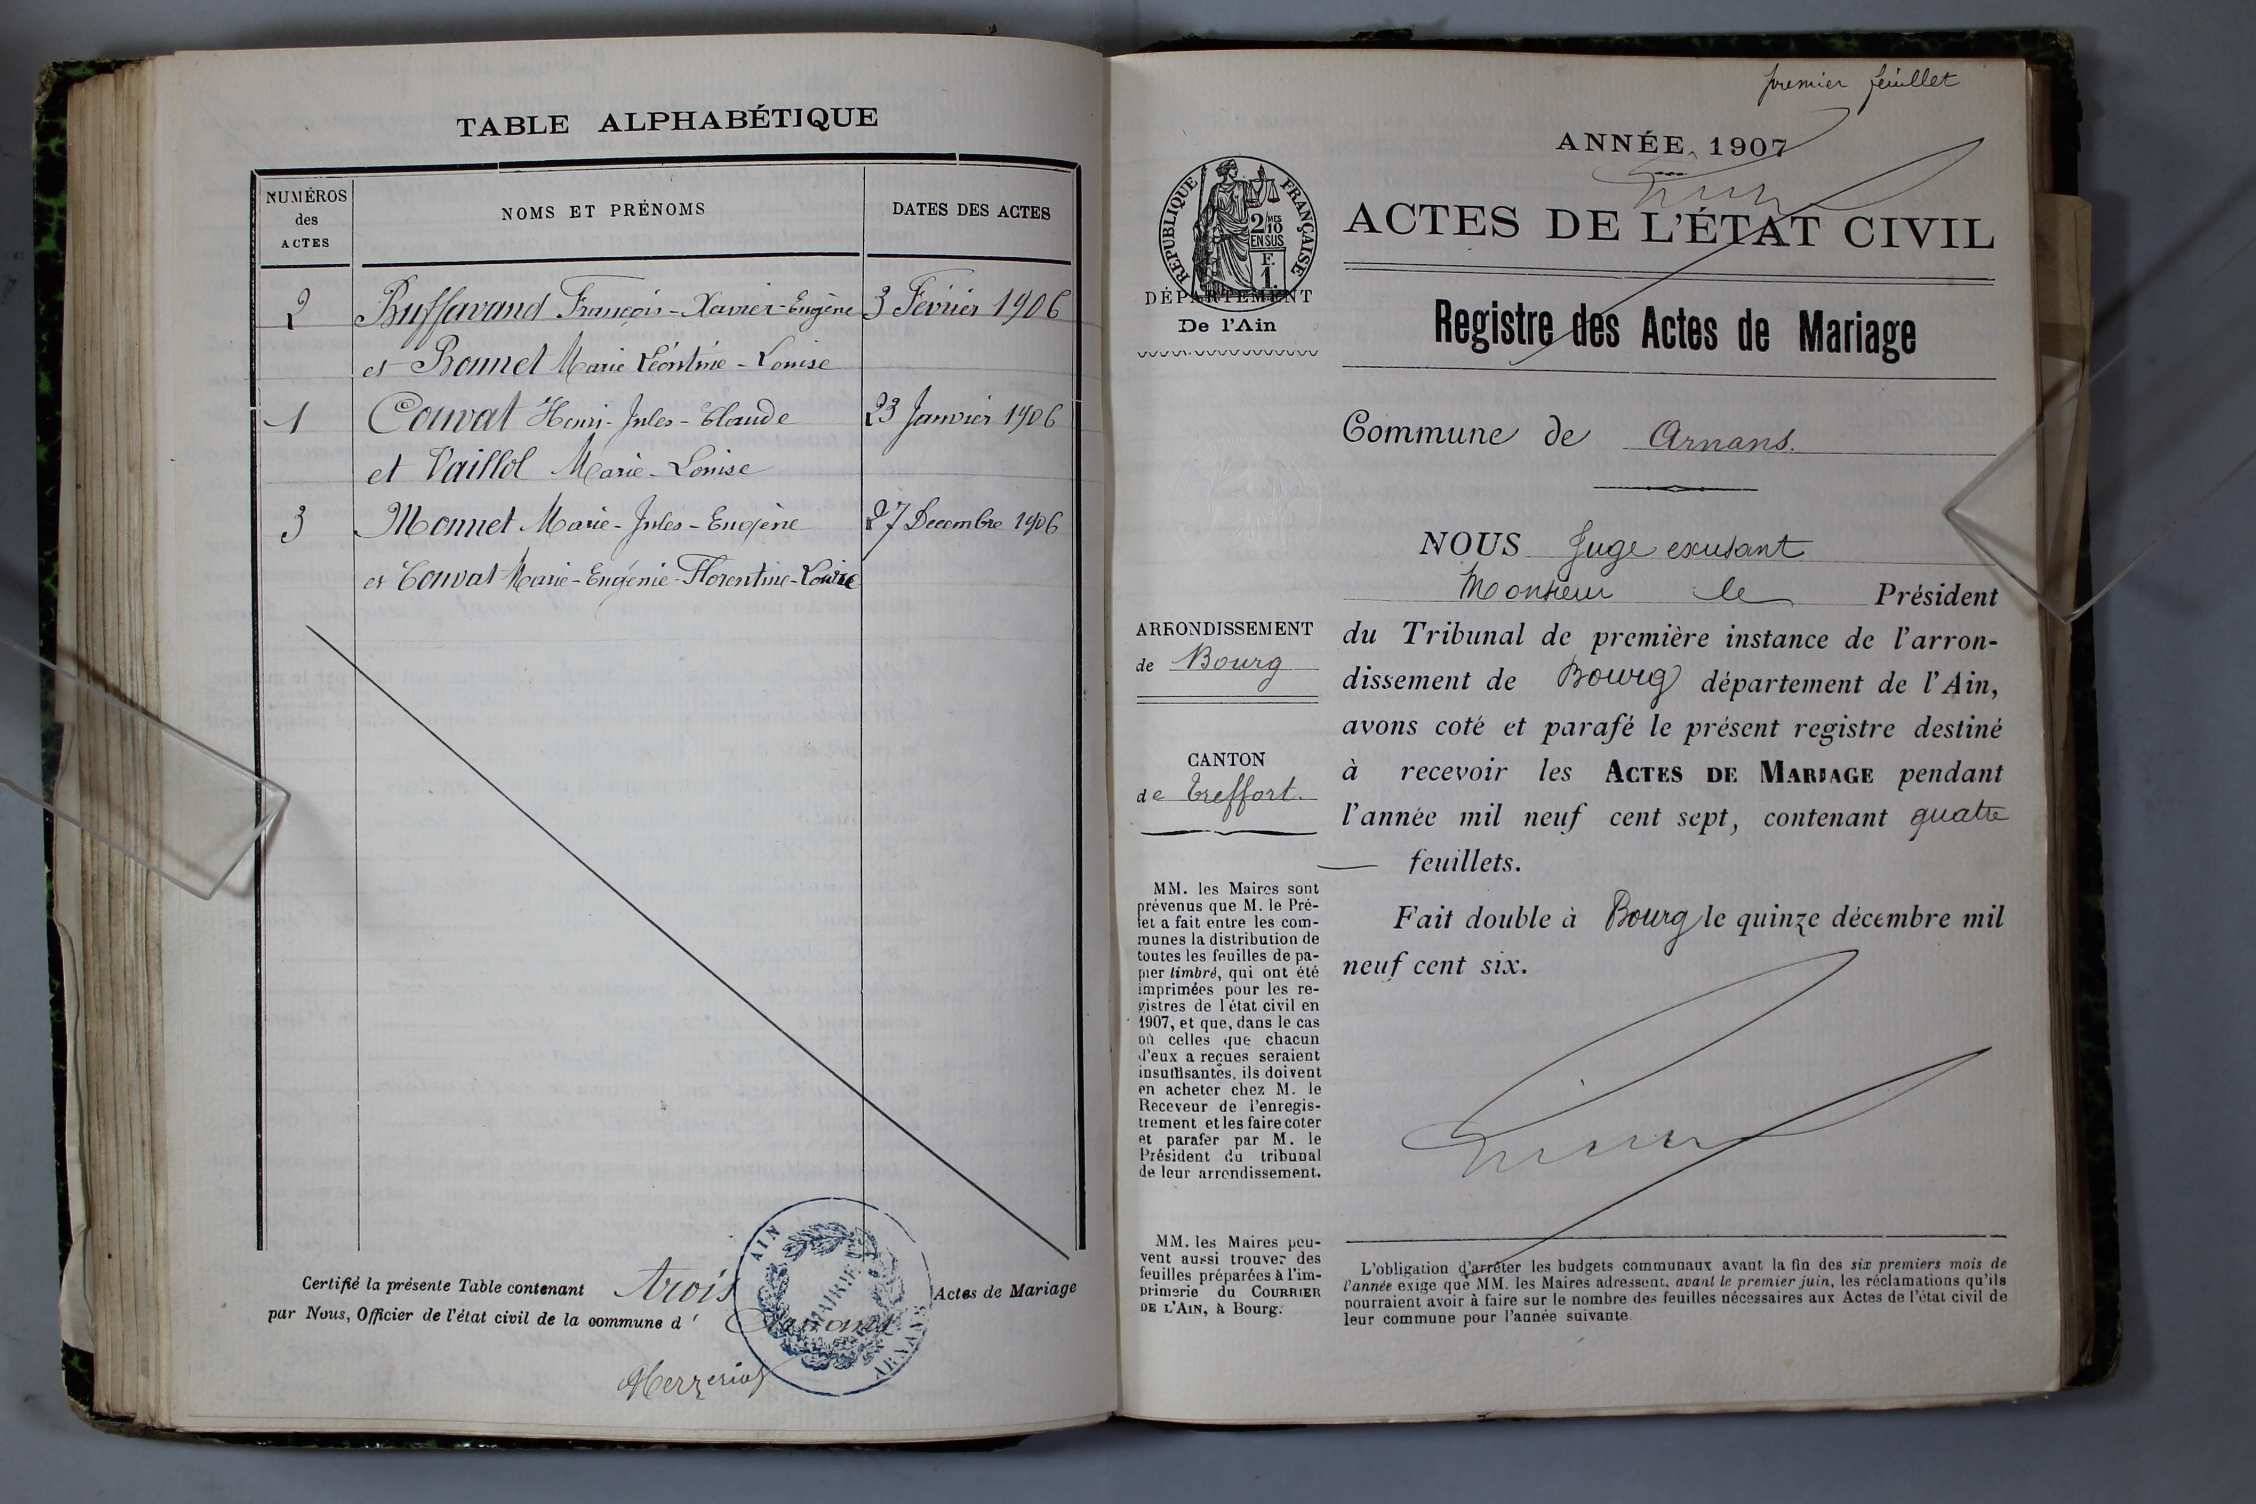 TABLE ALPHABÉTIQUE
NUMÉROS des ACTES
NOMS ET PRÉNOMS
DATES DES ACTES
2 Buffavand François-Xavier-Eugène 3 Février 1906
et Bonnet Marie Léontine-Louise
1 Convat Henri-Jules-Claude 23 Janvier 1906
et Vaillol Marie-Louise
3 Monnet Marie-Jules-Eugène 27 Decembre 1906
et Convat Marie-Eugénie-Florentine-Louise
Certifié la présente Table contenant trois Actes de Mariage
par Nous, Officier de l'état civil de la commune d' Arnans
AIN
MAIRIE
ARNANS
premier feuillet
ANNÉE 1907
RÉPUBLIQUE FRANÇAISE
2/10 MES
EN SUS
F.
1.
ACTES DE L'ÉTAT CIVIL
DÉPARTEMENT
De l'Ain
Registre des Actes de Mariage
Commune de Arnans.
ARRONDISSEMENT
de Bourg
CANTON
de Treffort.
NOUS Juge excusant
Monsieur le Président
du Tribunal de première instance de l'arron-
dissement de Bourg département de l'Ain,
avons coté et parafé le présent registre destiné
à recevoir les ACTES DE MARIAGE pendant
l'année mil neuf cent sept, contenant quatre
feuillets.
Fait double à Bourg le quinze décembre mil
neuf cent six.
MM. les Maires sont
prévenus que M. le Pré-
fet a fait entre les com-
munes la distribution de
toutes les feuilles de pa-
pier timbré, qui ont été
imprimées pour les re-
gistres de l'état civil en
1907, et que, dans le cas
où celles que chacun
d'eux a reçues seraient
insuffisantes, ils doivent
en acheter chez M. le
Receveur de l'enregis-
trement et les faire coter
et parafer par M. le
Président du tribunal
de leur arrondissement.
MM. les Maires peu-
vent aussi trouver des
feuilles préparées à l'im-
primerie du COURRIER
DE L'AIN, à Bourg.
L'obligation d'arrêter les budgets communaux avant la fin des six premiers mois de
l'année exige que MM. les Maires adressent, avant le premier juin, les réclamations qu'ils
pourraient avoir à faire sur le nombre des feuilles nécessaires aux Actes de l'état civil de
leur commune pour l'année suivante.